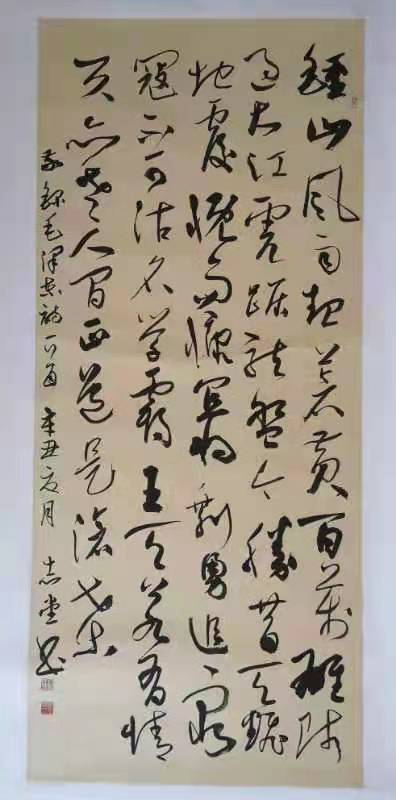 鍾山风雨起苍黄百万雄师
过大江虎踞龙盘今胜昔天翻
地覆慨而慷宜将剩勇追穷
寇不可沽名学霸王天若有情
天亦老人间正道是沧桑
录毛泽东诗一首 辛丑夏月 志堂书